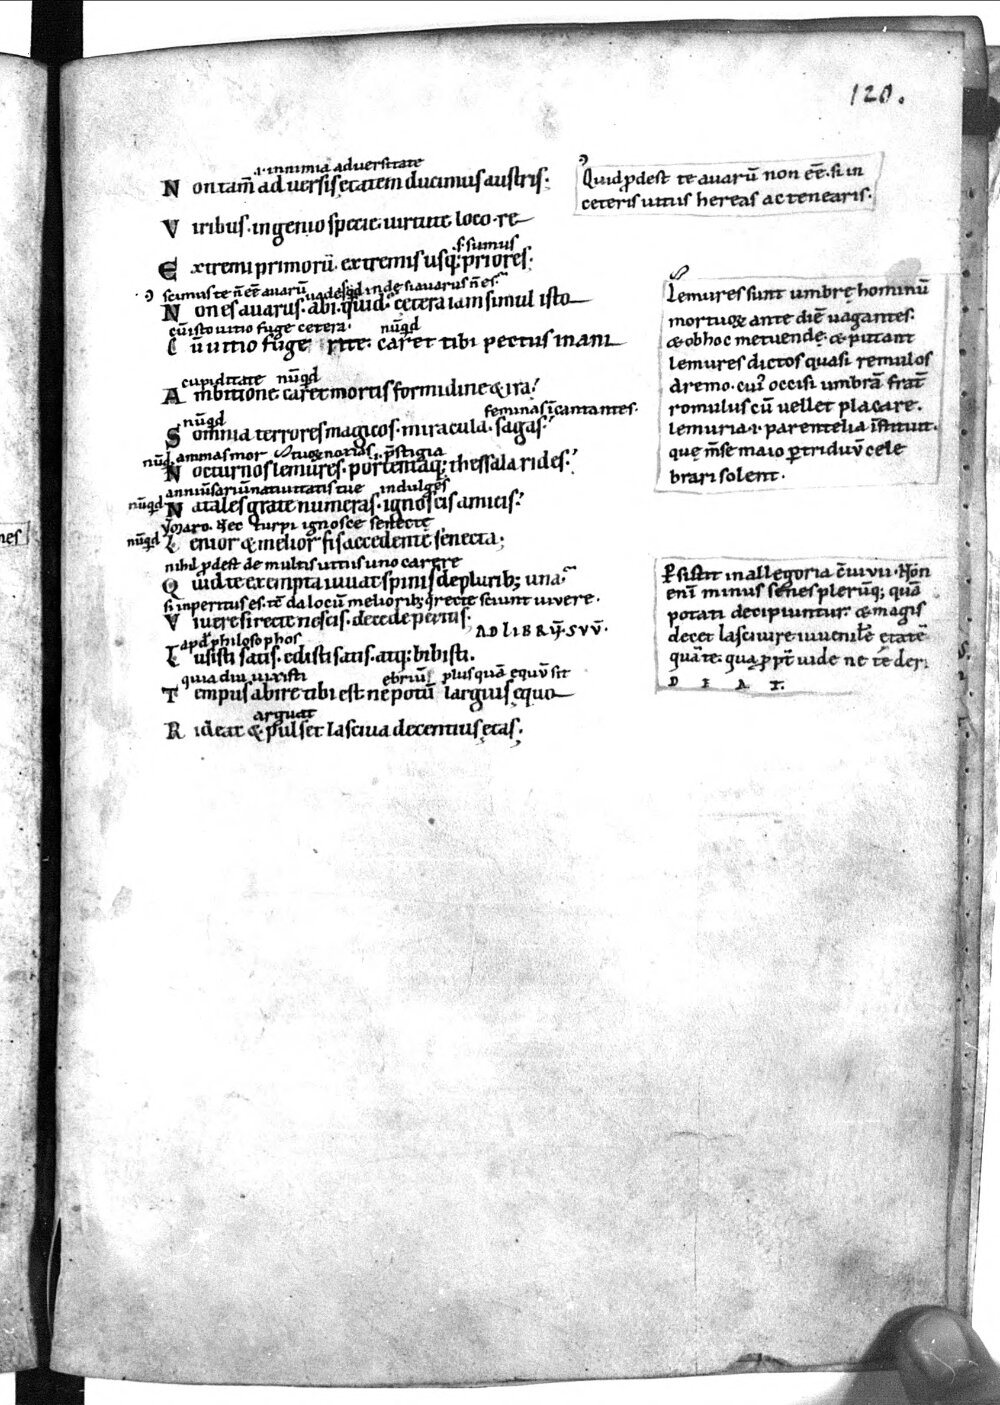 120.
.i. innimia aduersitate
Non tam̅ aduersis etatem ducimus austris.
Viribus. ingenio specie. uirtute loco. re
.s. sumus
Extremi primorū. extremis usq; priores.
scimus te n̅ eē auarū
Non es auarus. abi. quid. cetera iam simul isto
cū isto uitio fuge cetera. nūqd
Cū uitio fuge rite. caret tibi pectus inani
cupiditate nūqd
Ambitione caret mortis formidine & ira?
nūqd feminas īcantantes.
Somnia terrores magicos. miracula. sagas?
nūqd p̄stigia
Nocturnos lemures. portentaq; thessala rides?
nūqd anniūsariū natiuitatis tue indulges
Natales grate numeras. ignoscis amicis?
Maro. Nec turpi ignosce senectę
nūqd Lenior & melior fis accedente senecta;
nihil p̱dest de multis uitiis uno carere
Quid te exempta iuuat spinis de plurib; una?
si inperitus es. te da locū meliorib; q̇ recte sciunt uiuere.
Viuere si recte nescis. decede peritis.
AD LIBRṼ. SVṼ.
apd̄ philosophos
Lusisti satis. edisti satis. atq; bibisti.
quia diu uixisti ebriū plus quā equū sit
Tempus abire tibi est ne potū largius ęquo
arguat
Rideat & pulset lasciua decentius ętas.
Quid p̱dest te auarū non eē. si in
ceteris uitiis hereas ac tenearis.
Lemures sunt umbrę hominū
mortuoꝝ ante diē uagantes.
& ob hoc metuendę. & putant
lemures dictos quasi remulos
a remo. cui᾽ occisi umbrā frat̄
romulus cū uellet placare.
lemuria .i. parentelia īstituit.
que m̄se maio p̱ triduū cele
brari solent.
P̱sistit in allegoria c̄uiuii. Non
enī minus senes plerūq; quā
potati decipiuntur. & magis
decet lasciuire iuuenilē ętatē
quā te. quap̱p̄t uide ne te deri
DEAT.